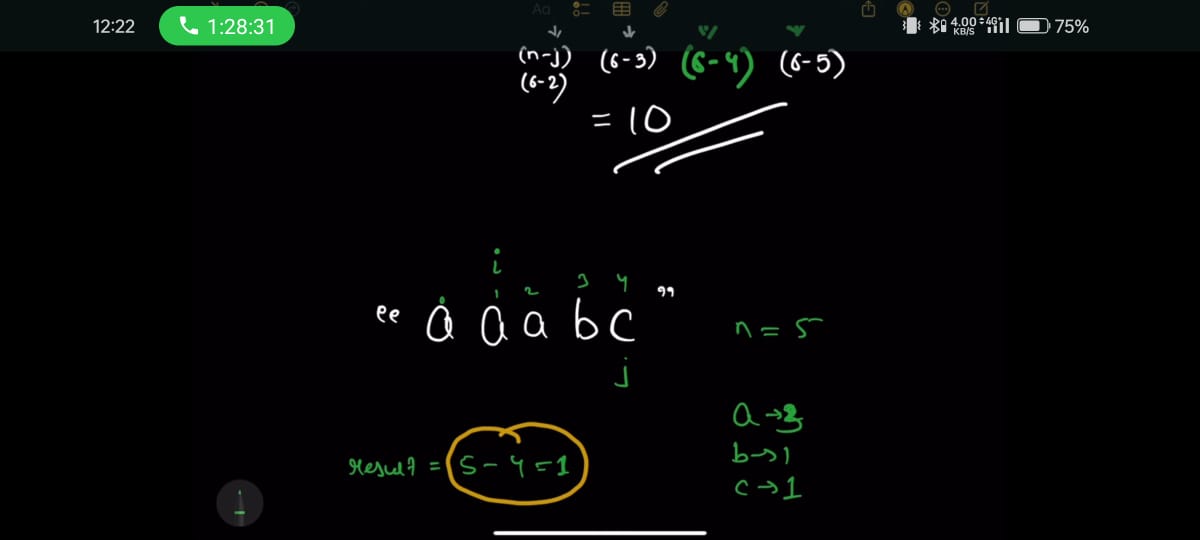 12:22 1:28:31 4.00 KB/S 4G 75%
Aa
(n-j) (6-3) (6-4) (6-5)
(6-2)
= 10
i
0 1 2 3 4
" a a a b c "
n = 5
j
a → 3
b → 1
c → 1
result = 5 - 4 = 1